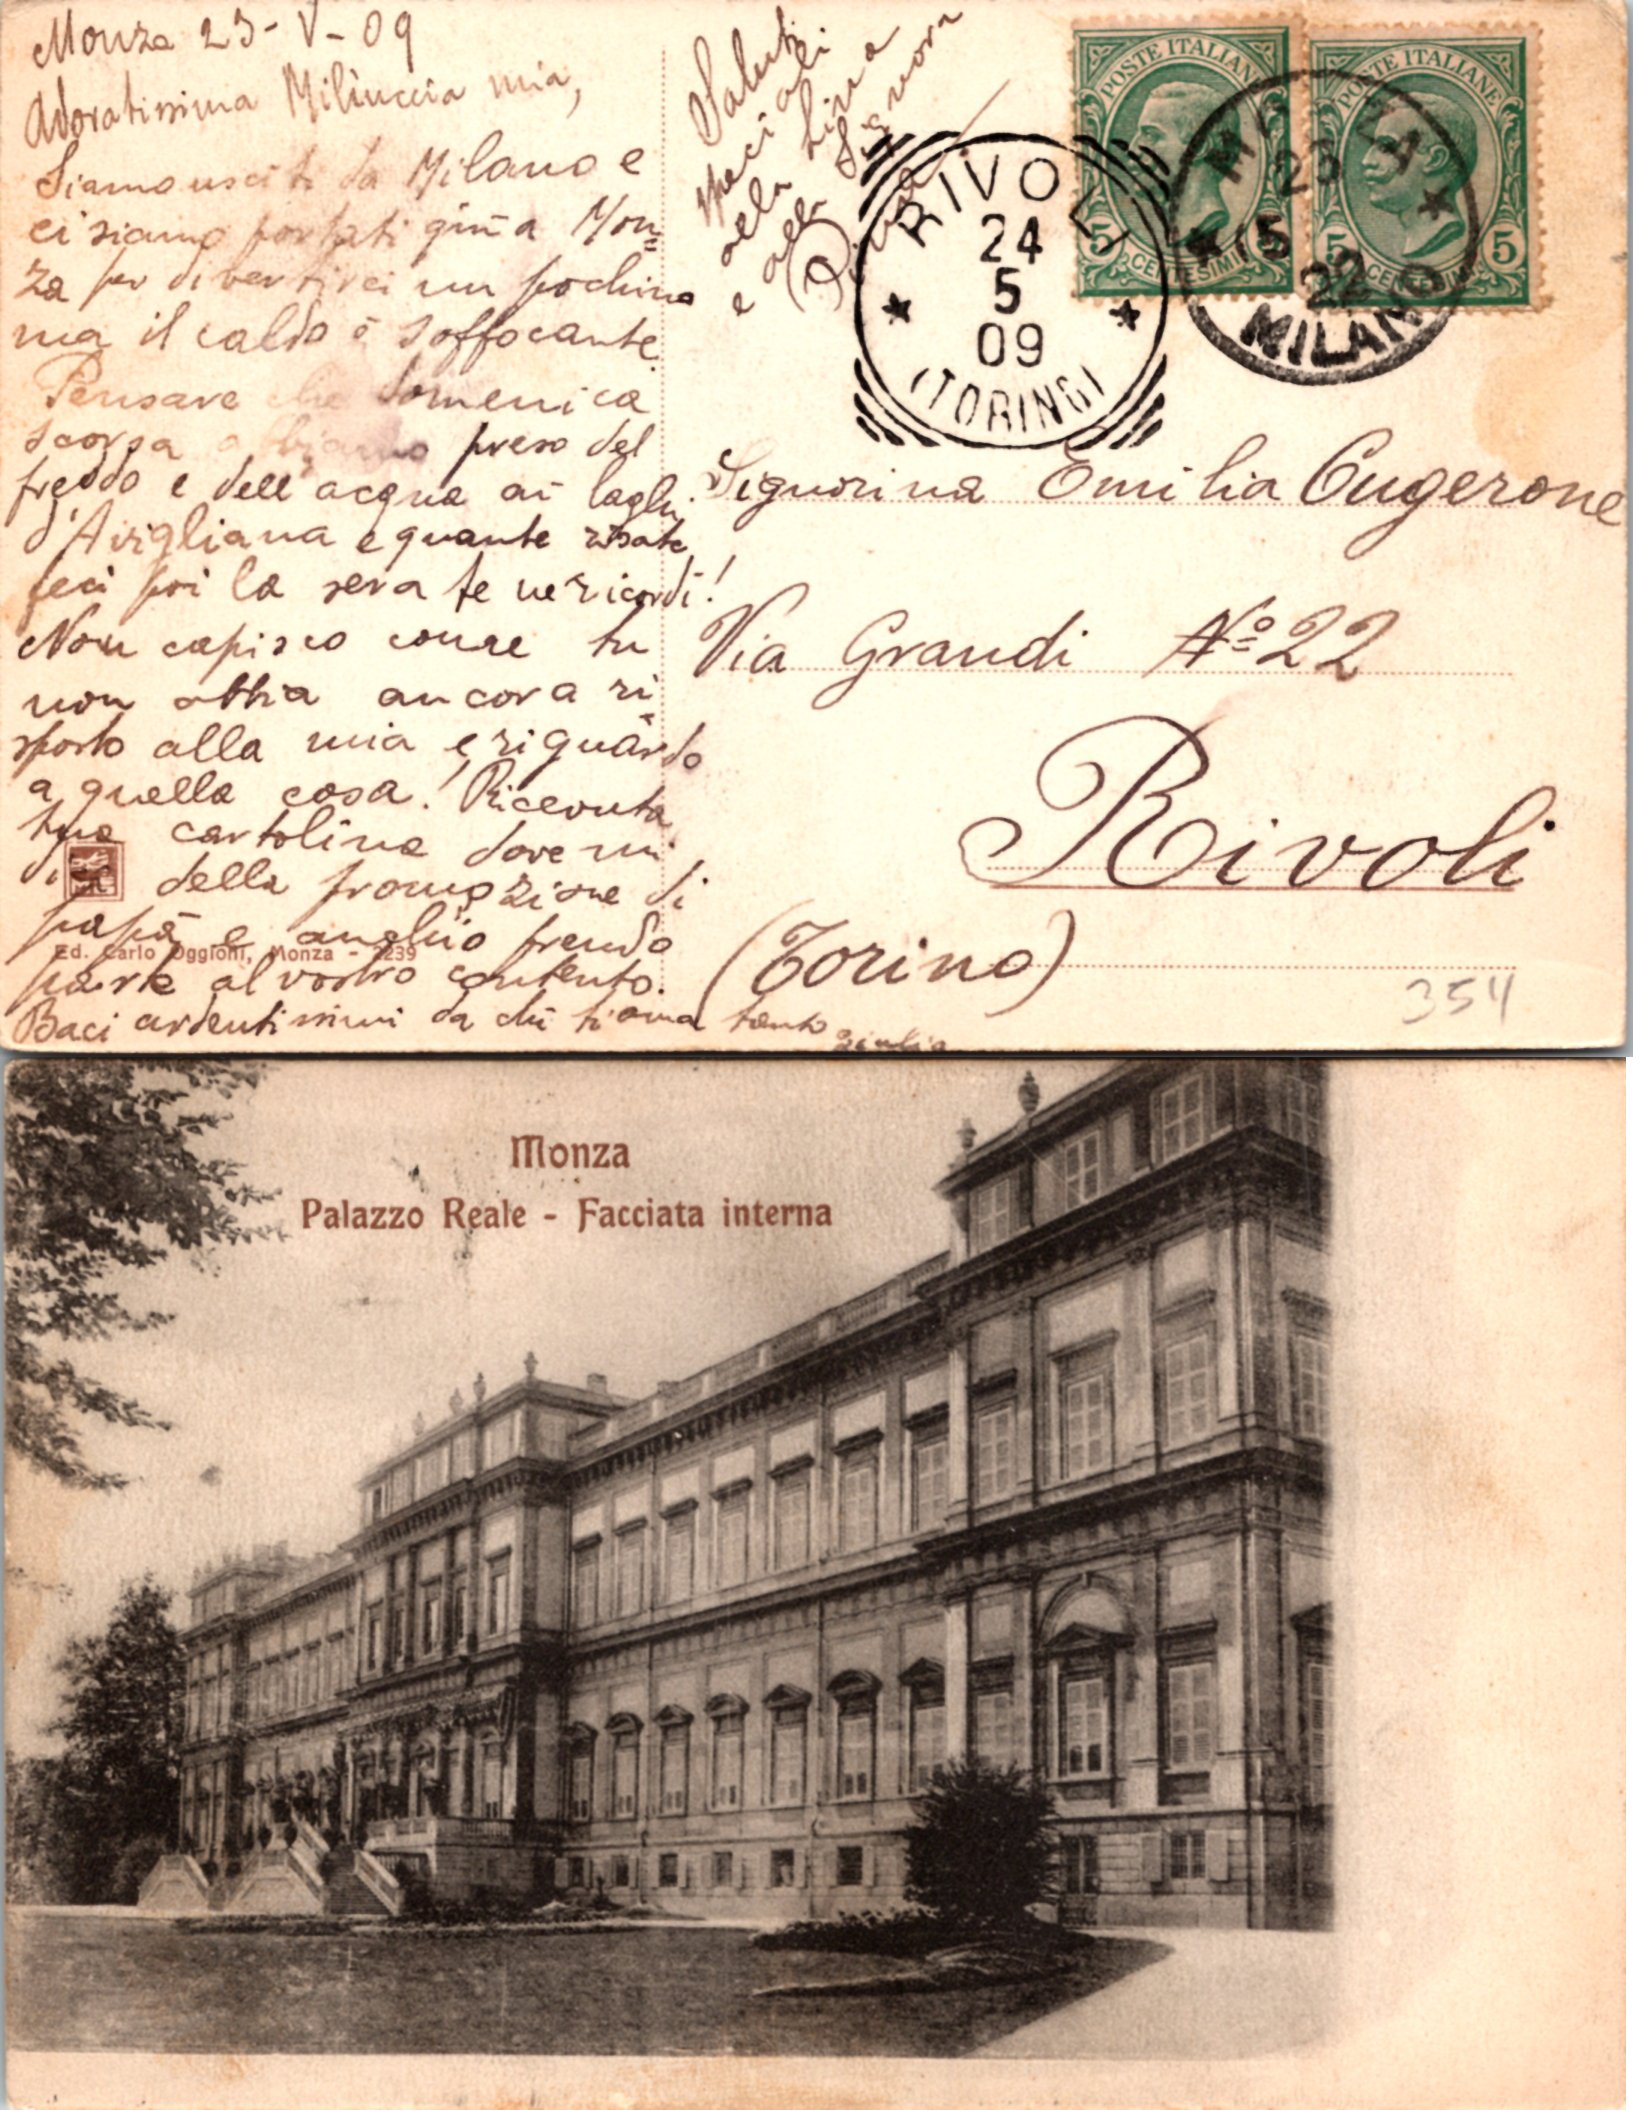 Monza 23-V-09
Adoratissima Miliuccia mia,
Siamo usciti da Milano e
ci siamo portati qui a Mon=
za per divertirci un pochino
ma il caldo è soffocante.
Pensare che domenica
scorsa abbiamo preso del
freddo e dell'acqua ai laghi
d'Avigliana e quante risate
feci poi la sera te ne ricordi!
Non capisco come tu
non abbia ancora ri=
sposto alla mia e riguardo
a quella cosa! Ricevuta
tua cartolina dove mi
della promozione di
papà e anch'io prendo
parte al vostro contento.
Baci ardentissimi da chi ti ama tanto
Giulia
Ed. Carlo Oggioni, Monza - 1239
Saluti
speciali
alla Lina
e alla Signora
POSTE ITALIANE
5 CENTESIMI 5
POSTE ITALIANE
5 CENTESIMI 5
RIVOLI
24
5
09
(TORINO)
MONZA
23
5
22
MILANO
Signorina Emilia Cugerone
Via Grandi No 22
Rivoli
(Torino)
354
Monza
Palazzo Reale - Facciata interna